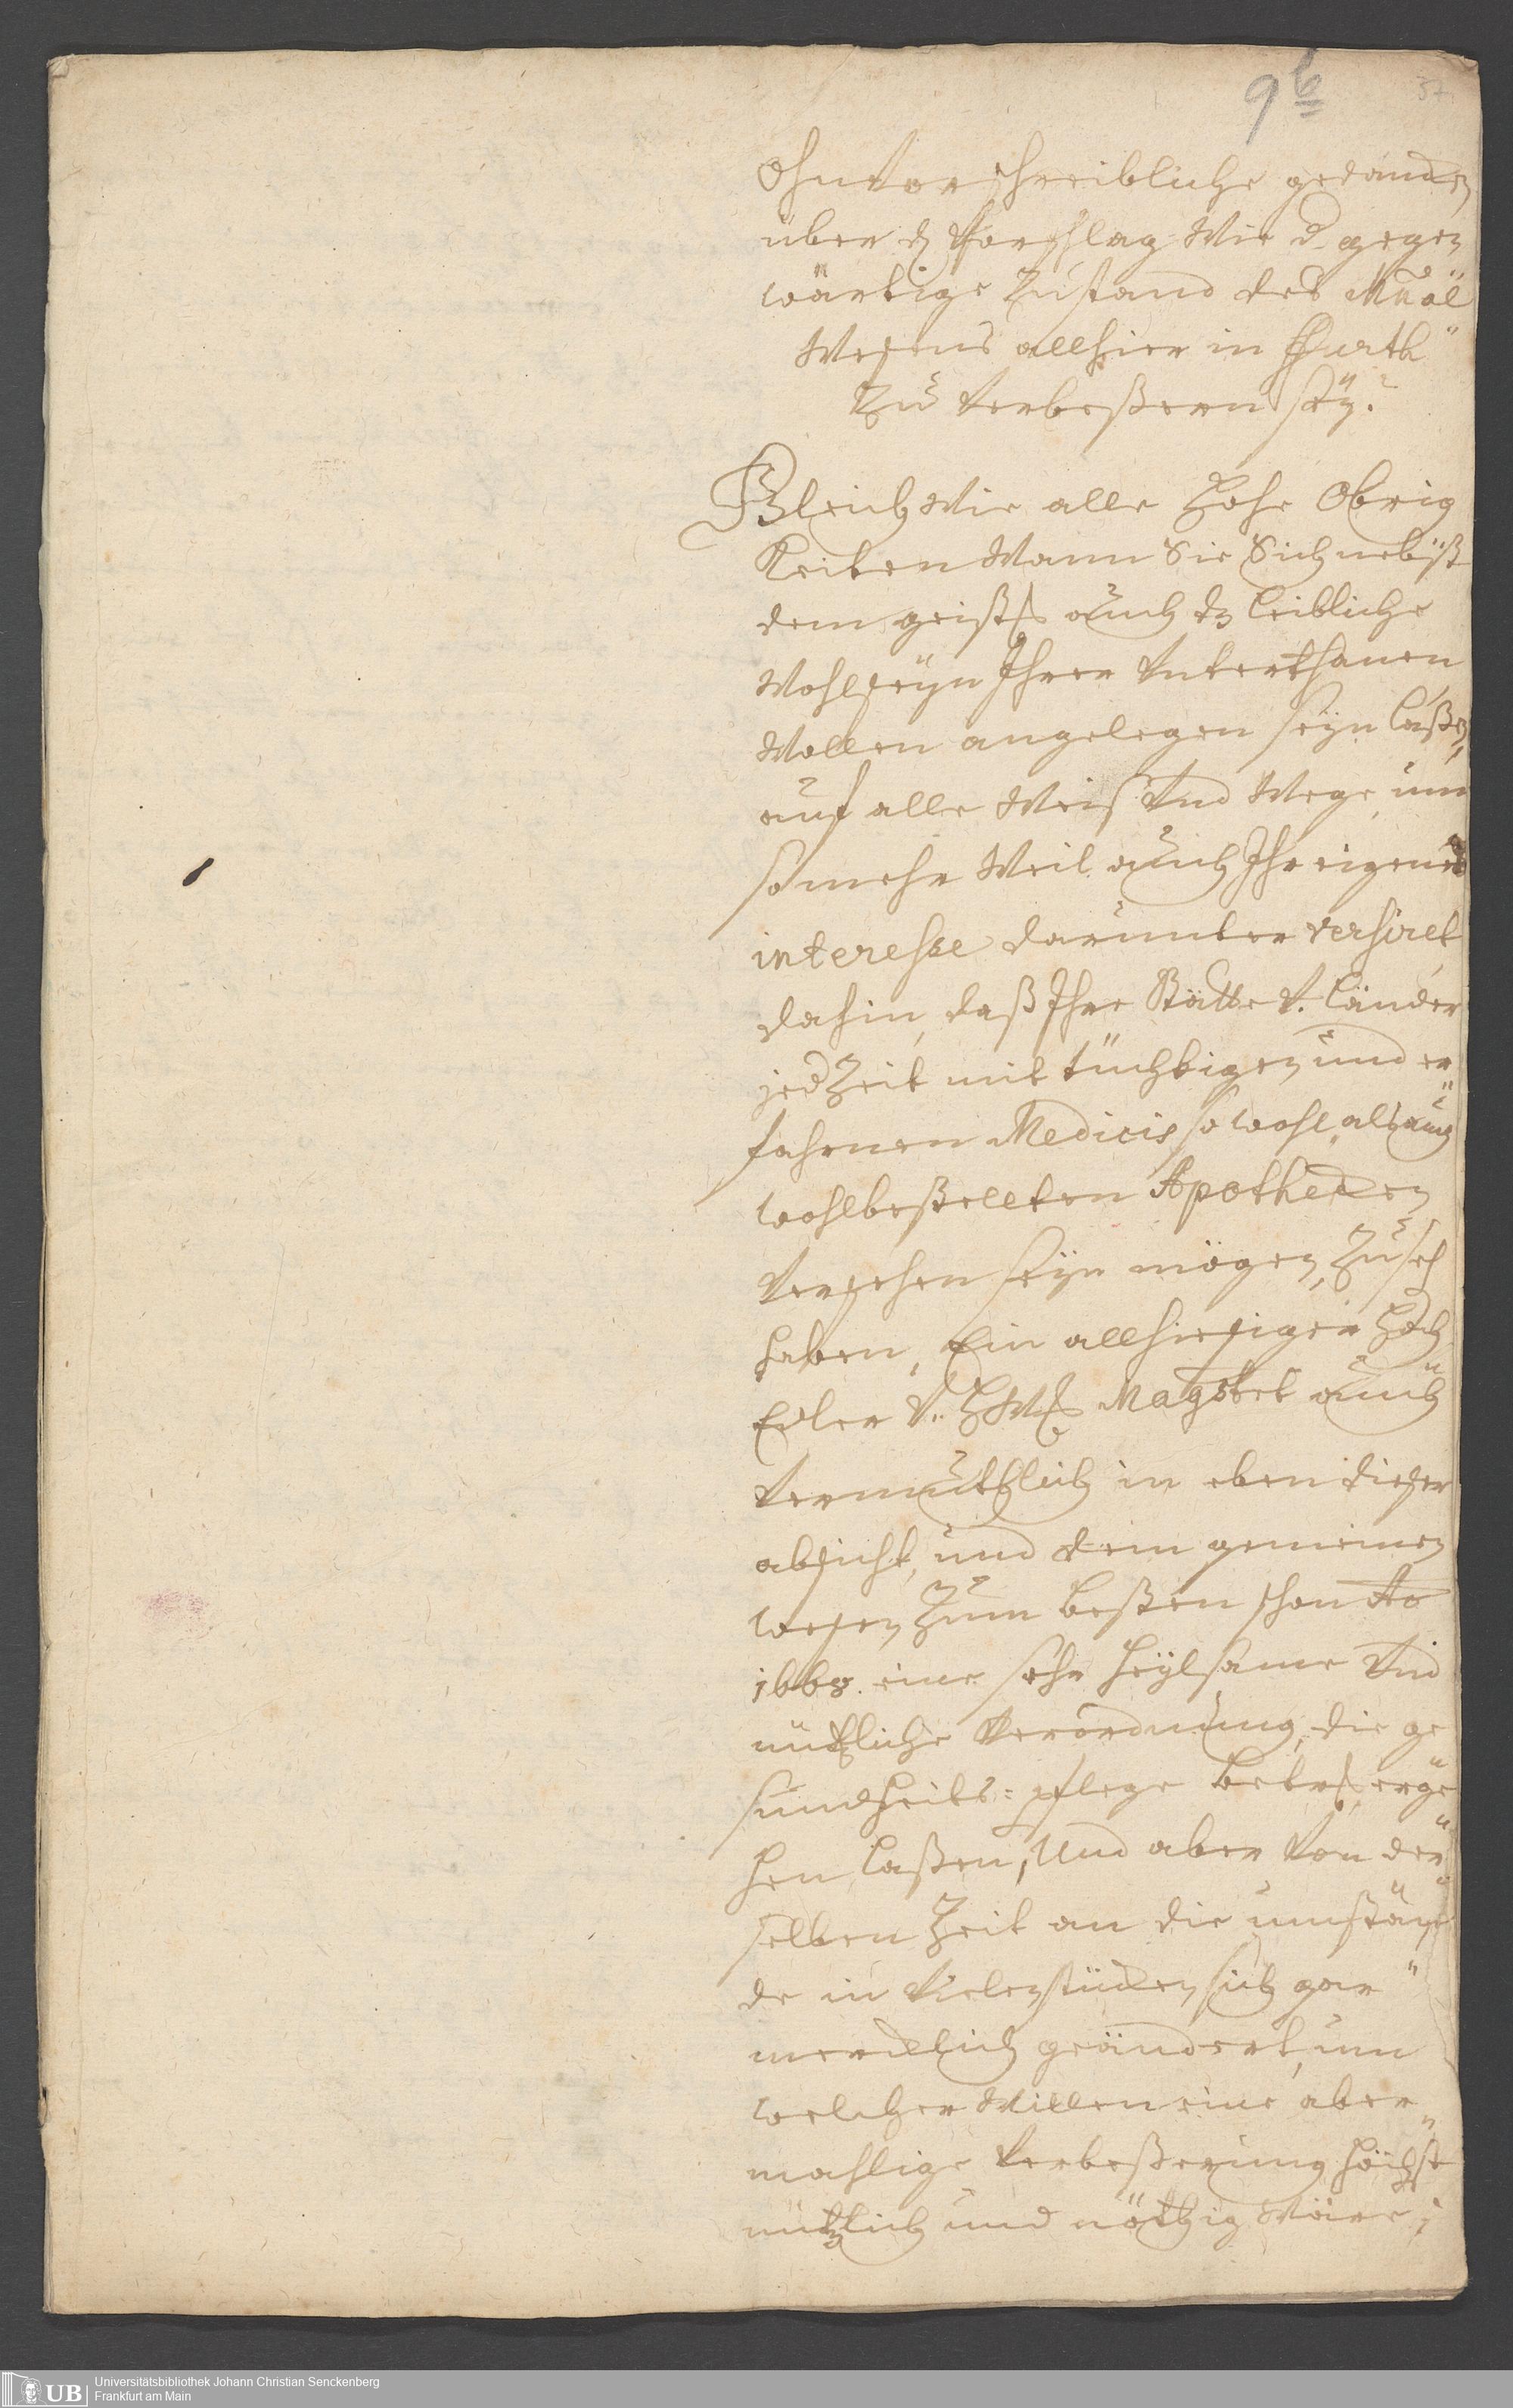 9 b
37
Ohnvorschreibliche gedancken
über den Vorschlag Wie d. gegen
wärtige Zustand des Mual
Wesens allhier in Ffurth
Zu Verbeßern sey?
Gleich Wie alle Hohe Obrig
Keiten Wann Sie Sich nebst
dem geistl. auch dz leibliche
Wohlseyn Ihrer Unterthanen
Wollen angelegen seyn laßen,
auf alle Weiß Und Wege, um
so mehr Weil auch Ihr eigenes
interesse darunter versiret
dahin, daß Ihre Stätte V. Länder
jedZeit mit tüchtigen und er
fahrnen Medicis so wohl, als auch
wohlbestellten Apothecken
Versehen seyn mögen, Zu seh
haben, Ein allhiesiger Hoch
Edler V. HWl Magstrt auch
Vermuthlich in eben dieser
absicht, und dem gemeinen
wesen Zum besten schon Ao
1668. eine sehr heylsame Und
nützliche Verordnung, die ge
sundheits=pflege betrl. erge
hen laßen, Und aber Von der
selben Zeit an die umstän
de in Vielen stücken sich gar
mercklich geändert, um
welcher Willen eine aber
mahlige Verbeßerung höchst
nützlich und nöthig Wäre;
UB
Universitätsbibliothek Johann Christian Senckenberg
Frankfurt am Main